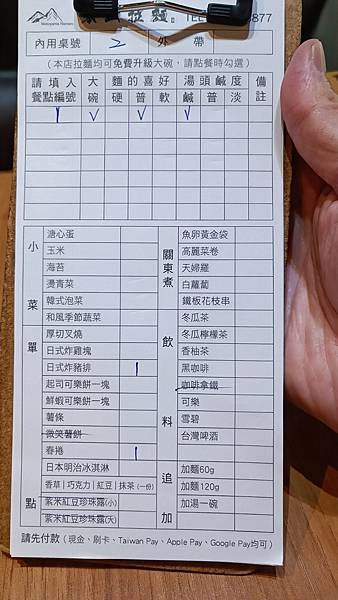 Motoyama Ramen
拉麵 TEL 877
內用桌號 2 外帶
(本店拉麵均可免費升級大碗,請點餐時勾選)
請填入餐點編號 大碗 麵的喜好 硬 普 軟 湯頭鹹度 鹹 普 淡 備註
1 V V V
小菜單點
溏心蛋
玉米
海苔
燙青菜
韓式泡菜
和風季節蔬菜
厚切叉燒
日式炸雞塊
日式炸豬排 1
起司可樂餅一塊
鮮蝦可樂餅一塊
薯條
微笑薯餅
春捲 1
日本明治冰淇淋
香草|巧克力|紅豆|抹茶(一份)
紫米紅豆珍珠露(小)
紫米紅豆珍珠露(大)
關東煮
魚卵黃金袋
高麗菜卷
天婦羅
白蘿蔔
鐵板花枝串
飲料
冬瓜茶
冬瓜檸檬茶
香柚茶
黑咖啡
咖啡拿鐵
可樂
雪碧
台灣啤酒
追加
加麵60g
加麵120g
加湯一碗
請先付款(現金、刷卡、Taiwan Pay、Apple Pay、Google Pay均可)